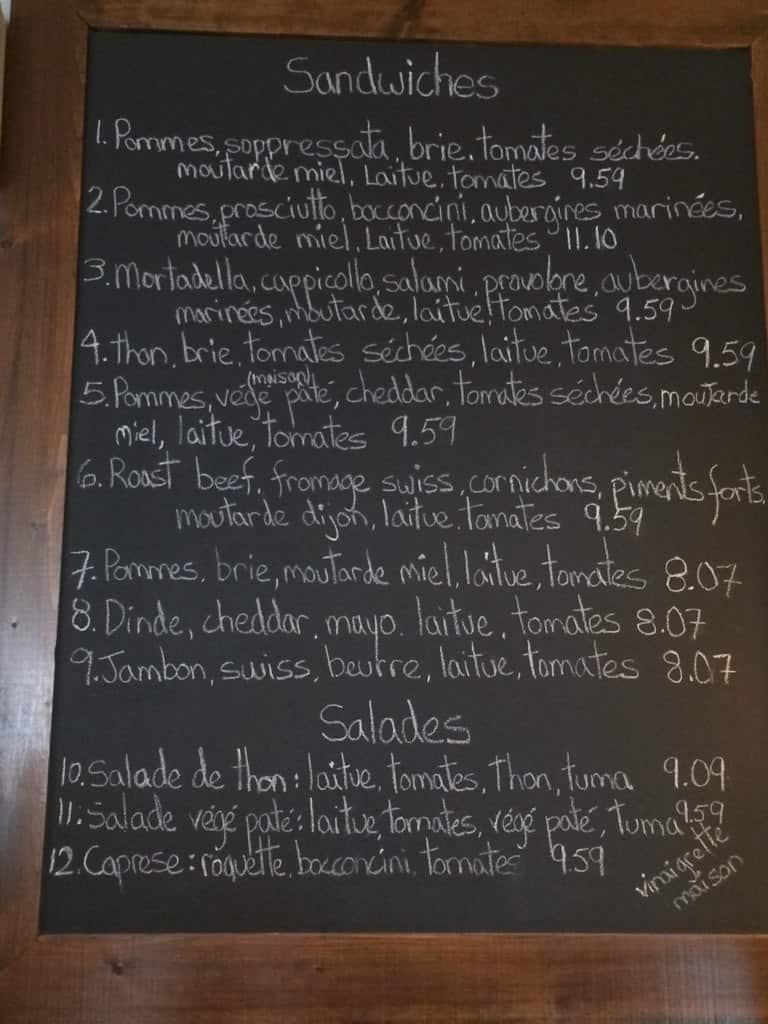 Sandwiches
1. Pommes, soppressata, brie, tomates séchées,
moutarde miel, Laitue, tomates 9.59
2. Pommes, prosciutto, bocconcini, aubergires marinées,
moutarde miel, Laitue, tomates 11.10
3. Mortadella, cappicollo, salami, provolone, aubergines
marinées, moutarde, laitue, tomates 9.59
4. thon, brie, tomates séchées, laitue, tomates 9.59
(maison)
5. Pommes, végé paté, cheddar, tomates séchées, moutarde
miel, laitue, tomates 9.59
6. Roast beef, fromage swiss, cornichons, piments forts,
moutarde dijon, laitue, tomates 9.59
7. Pommes, brie, moutarde miel, laitue, tomates 8.07
8. Dinde, cheddar, mayo, laitue, tomates 8.07
9. Jambon, swiss, beurre, laitue, tomates 8.07
Salades
10. Salade de thon: laitue, tomates, Thon, tuma 9.09
11. Salade végé paté: laitue, tomates, végé paté, tuma 9.59
12. Caprese: roquette, bocconcini, tomates 9.59
vinaigrette
maison